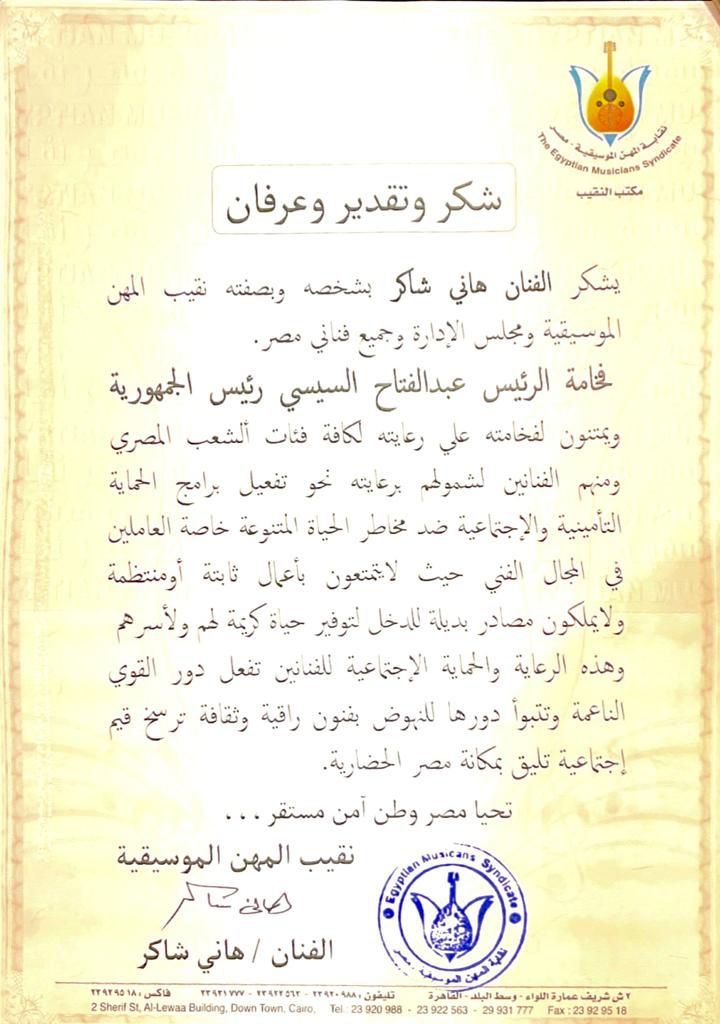 نقابة المهن الموسيقية - مصر
The Egyptian Musicians Syndicate
مكتب النقيب
شكر وتقدير وعرفان
يشكر الفنان هاني شاكر بشخصه وبصفته نقيب المهن
الموسيقية ومجلس الإدارة وجميع فناني مصر.
فخامة الرئيس عبدالفتاح السيسي رئيس الجمهورية
ويمتنون لفخامته علي رعايته لكافة فئات ألشعب المصري
ومنهم الفنانين لشمولهم برعايته نحو تفعيل برامج الحماية
التأمينية والإجتماعية ضد مخاطر الحياة المتنوعة خاصة العاملين
في المجال الفني حيث لايتمتعون بأعمال ثابتة أومنتظمة
ولايملكون مصادر بديلة للدخل لتوفير حياة كريمة لهم ولأسرهم
وهذه الرعاية والحماية الإجتماعية للفنانين تفعل دور القوي
الناعمة وتتبوأ دورها للنهوض بفنون راقية وثقافة ترسخ قيم
إجتماعية تليق بمكانة مصر الحضارية.
تحيا مصر وطن آمن مستقر ...
نقيب المهن الموسيقية
هاني شاكر
الفنان / هاني شاكر
Egyptian Musicans Syndicate
نقابة المهن الموسيقية - مصر
٢ ش شريف عمارة اللواء - وسط البلد - القاهرة تليفون : ٢٣٩٢٠٩٨٨ - ٢٣٩٢٢٥٦٣ - ٢٩٩٣١٧٧٧ فاكس : ٢٣٩٢٩٥١٨
2 Sherif St, Al-Lewaa Building, Down Town, Cairo, Tel : 23 920 988 - 23 922 563 - 29 931 777 Fax : 23 92 95 18